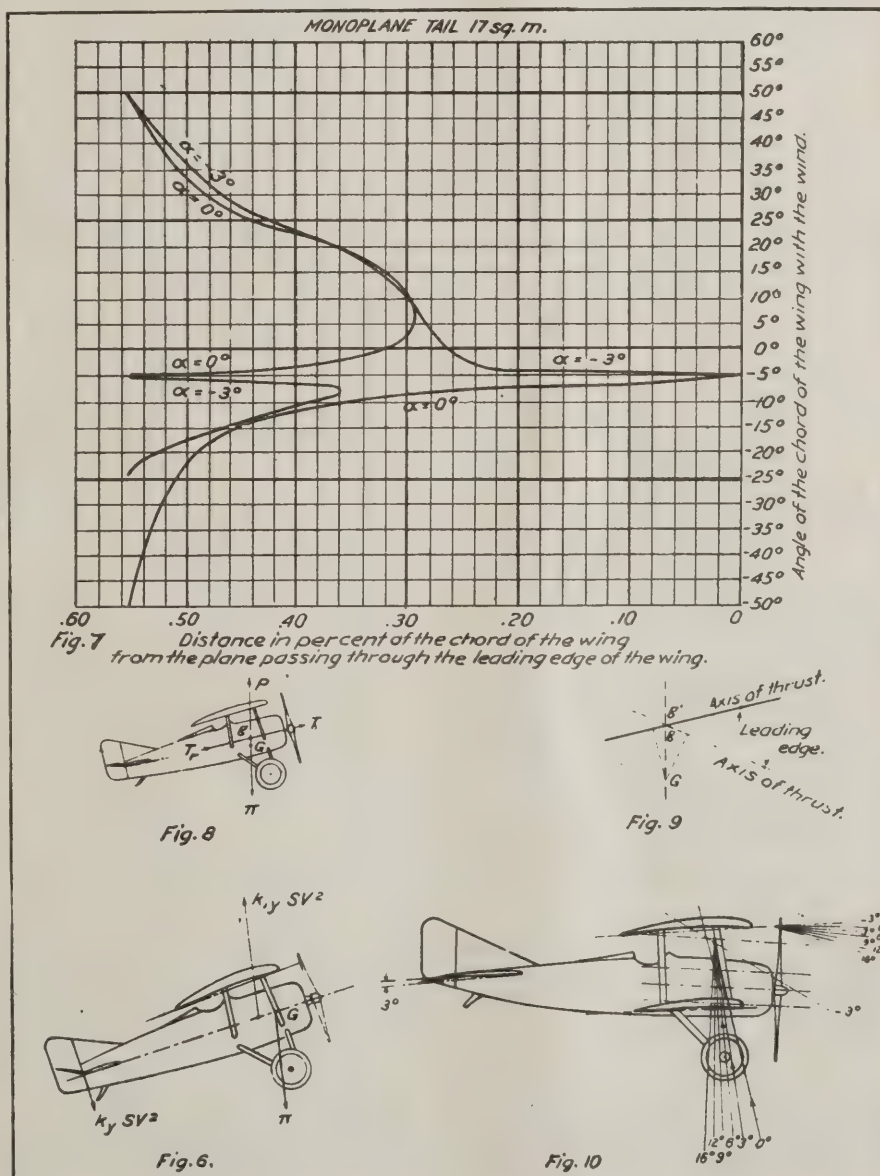 MONOPLANE TAIL 17 sq. m.
60°
55°
50°
45°
40°
35°
30°
25°
20°
15°
10°
5°
0°
-5°
-10°
-15°
-20°
-25°
-30°
-35°
-40°
-45°
-50°
Angle of the chord of the wing with the wind.
α = -3°
α = 0°
α = 0°
α = -3°
α = -3°
α = 0°
.60 .50 .40 .30 .20 .10 0
Fig. 7
Distance in per cent of the chord of the wing
from the plane passing through the leading edge of the wing.
P
G
π
Fig. 8
Axis of thrust.
Leading
edge.
G
Axis of thrust.
Fig. 9
k,y SV²
G
ky SV²
π
Fig. 6.
3°
-3°
-3°
12° 6° 3° 0°
16° 9°
Fig. 10